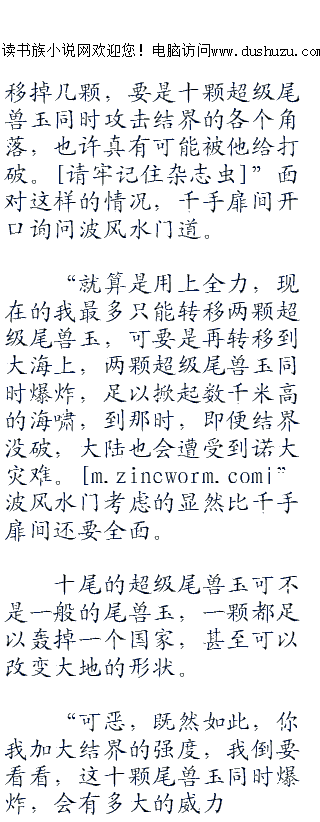 读书族小说网欢迎您！电脑访问www.dushuzu.com
移掉几颗，要是十颗超级尾
兽玉同时攻击结界的各个角
落，也许真有可能被他给打
破。[请牢记住杂志虫]”面
对这样的情况，千手扉间开
口询问波风水门道。
“就算是用上全力，现
在的我最多只能转移两颗超
级尾兽玉，可要是再转移到
大海上，两颗超级尾兽玉同
时爆炸，足以掀起数千米高
的海啸，到那时，即便结界
没破，大陆也会遭受到诺大
灾难。[m.zincworm.com]”
波风水门考虑的显然比千手
扉间还要全面。
十尾的超级尾兽玉可不
是一般的尾兽玉，一颗都足
以轰掉一个国家，甚至可以
改变大地的形状。
“可恶，既然如此，你
我加大结界的强度，我倒要
看看，这十颗尾兽玉同时爆
炸，会有多大的威力